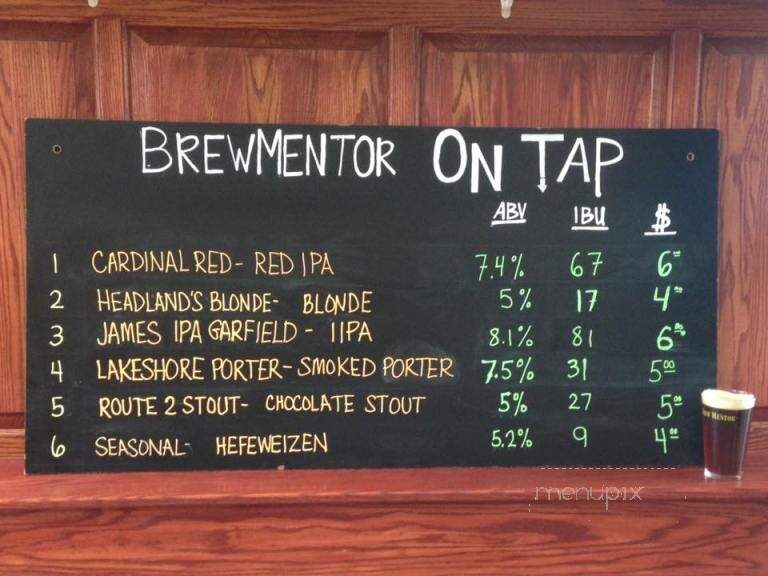 BREWMENTOR ON TAP
ABV IBU $
1 CARDINAL RED- RED IPA 7.4% 67 6
2 HEADLAND'S BLONDE- BLONDE 5% 17 4
3 JAMES IPA GARFIELD - IIPA 8.1% 81 6
4 LAKESHORE PORTER- SMOKED PORTER 7.5% 31 5 00
5 ROUTE 2 STOUT- CHOCOLATE STOUT 5% 27 5
6 SEASONAL- HEFEWEIZEN 5.2% 9 4
MENTOR
menupix